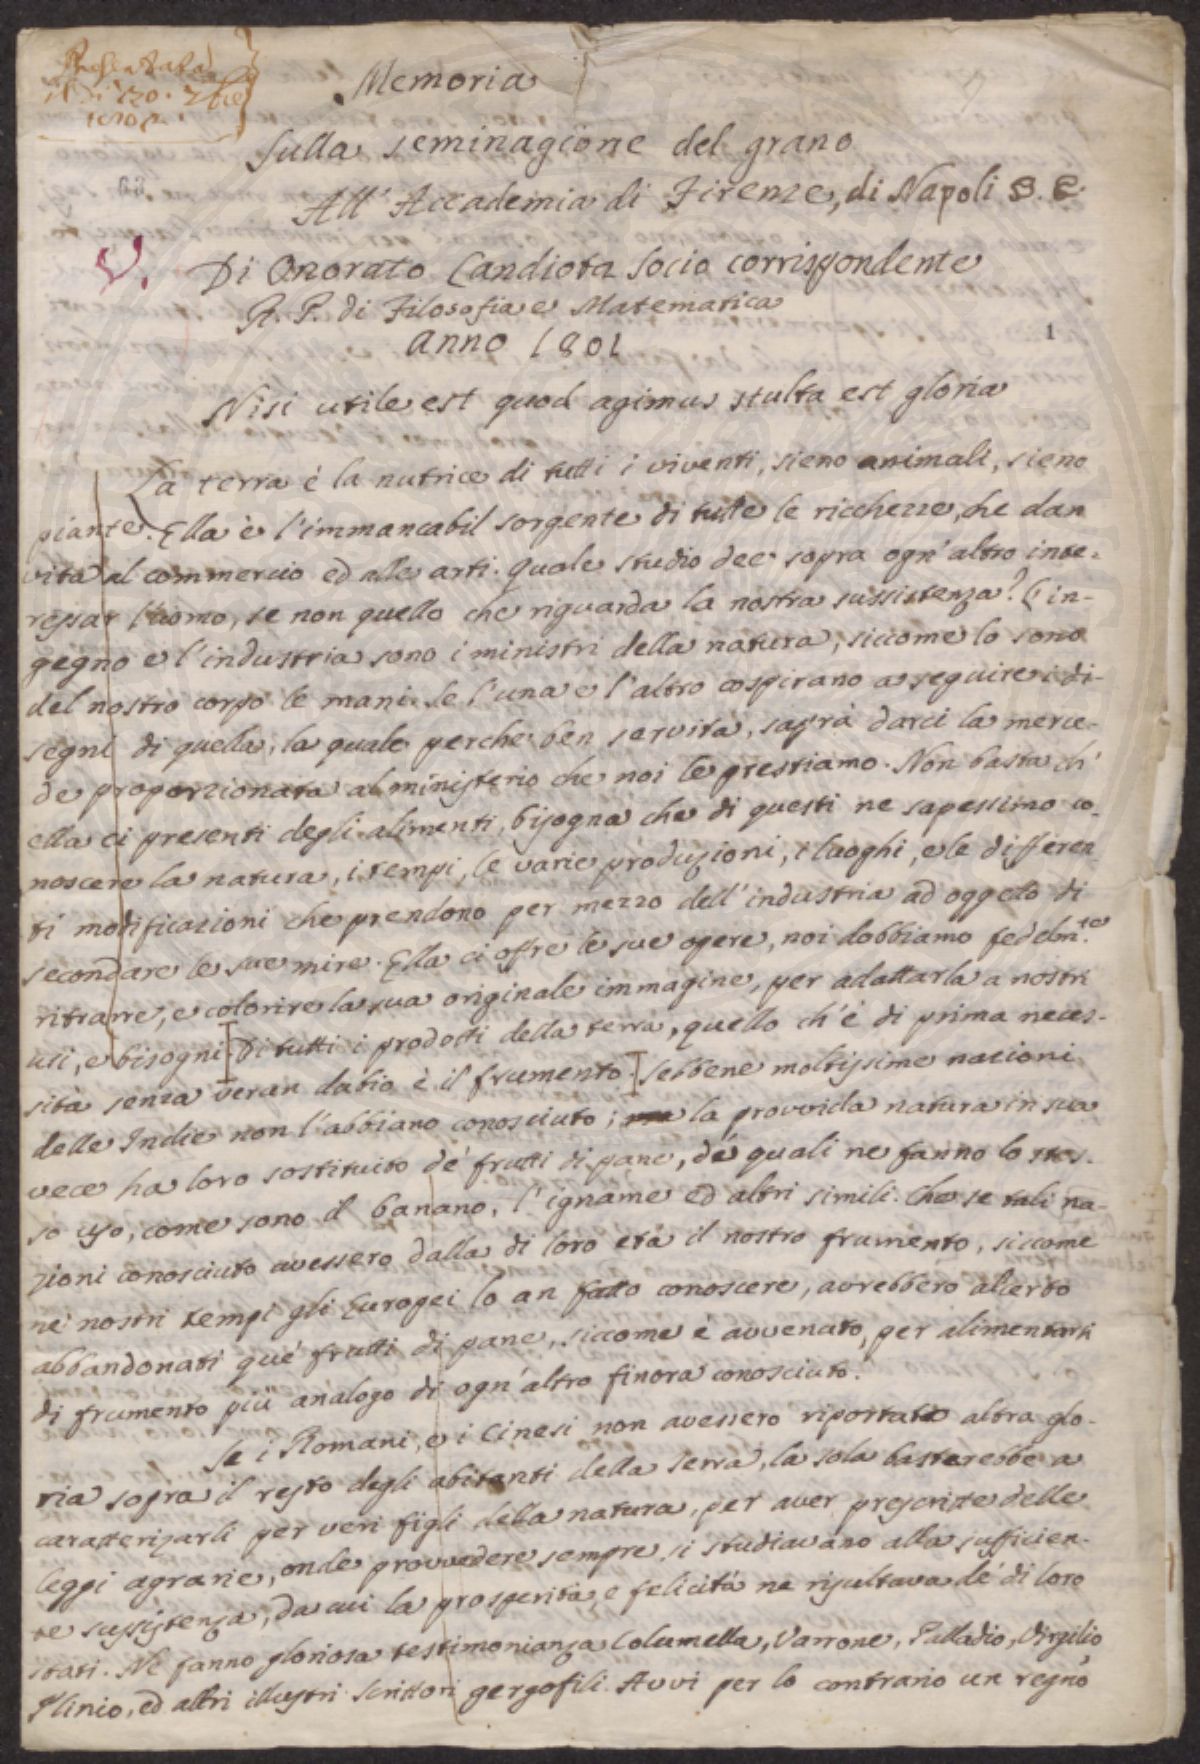 Memoria
Sulla seminagione del grano
All' Accademia di Firenze, di Napoli S. C
V. Di Onorato Candiota Socio corrispondente
R. P. di Filosofia e Matematica
anno 1801
1
Nisi utile est quod agimus stulta est gloria
La terra è la nutrice di tutti i viventi, sieno animali, sieno
piante. Ella è l'immancabil sorgente di tutte le ricchezze, che dan
vita al commercio ed alle arti. Quale studio dee sopra ogn'altro inte-
ressar l'uomo, se non quello che riguarda la nostra sussistenza? L'in-
gegno e l'industria sono i ministri della natura, siccome lo sono
del nostro corpo le mani. Se l'una e l'altro cospirano a seguire i di-
segni di quella, la quale perche ben servita, saprà darci la merce-
de proporzionata al ministerio che noi le prestiamo. Non basta ch'
ella ci presenti degli alimenti, bisogna che di questi ne sapessimo co-
noscere la natura, i tempi, le varie produzioni, i luoghi, e le differen
ti modificazioni che prendono per mezzo dell'industria ad oggetto di
secondare le sue mire. Ella ci offre le sue opere, noi dobbiamo fedelm.te
ritrarre, e colorire la sua originale immagine, per adattarla a nostri
usi, e bisogni. Di tutti i prodotti della terra, quello ch'è di prima neces-
sità senza verun dubio è il frumento. Sebbene moltissime nazioni
delle Indie non l'abbiano conosciuto; ma la provvida natura in sua
vece ha loro sostituito de' frutti di pane, de' quali ne fanno lo stes-
so uso, come sono il banano, l'igname ed altri simili. Che se tali na-
zioni conosciuto avessero dalla di loro età il nostro frumento, siccome
ne' nostri tempi gli Europei lo an fatto conoscere, avrebbero alcerto
abbandonati que' frutti di pane, siccome è avvenuto, per alimentarsi
di frumento più analogo di ogn'altro finora conosciuto.
Se i Romani, e i Cinesi non avessero riportato altra glo-
ria sopra il resto degli abitanti della terra, la sola basterebbe a
caratterizarli per veri figli della natura, per aver prescritte delle
leggi agrarie, onde provvedere sempre si studiavano alla sufficien-
te sussistenza, da cui la prosperità e felicità ne risultava de' di loro
stati. Ne fanno gloriosa testimonianza Columella, Varrone, Palladio, Virgilio,
Plinio, ed altri illustri scrittori gergofili. Avvi per lo contrario un regno